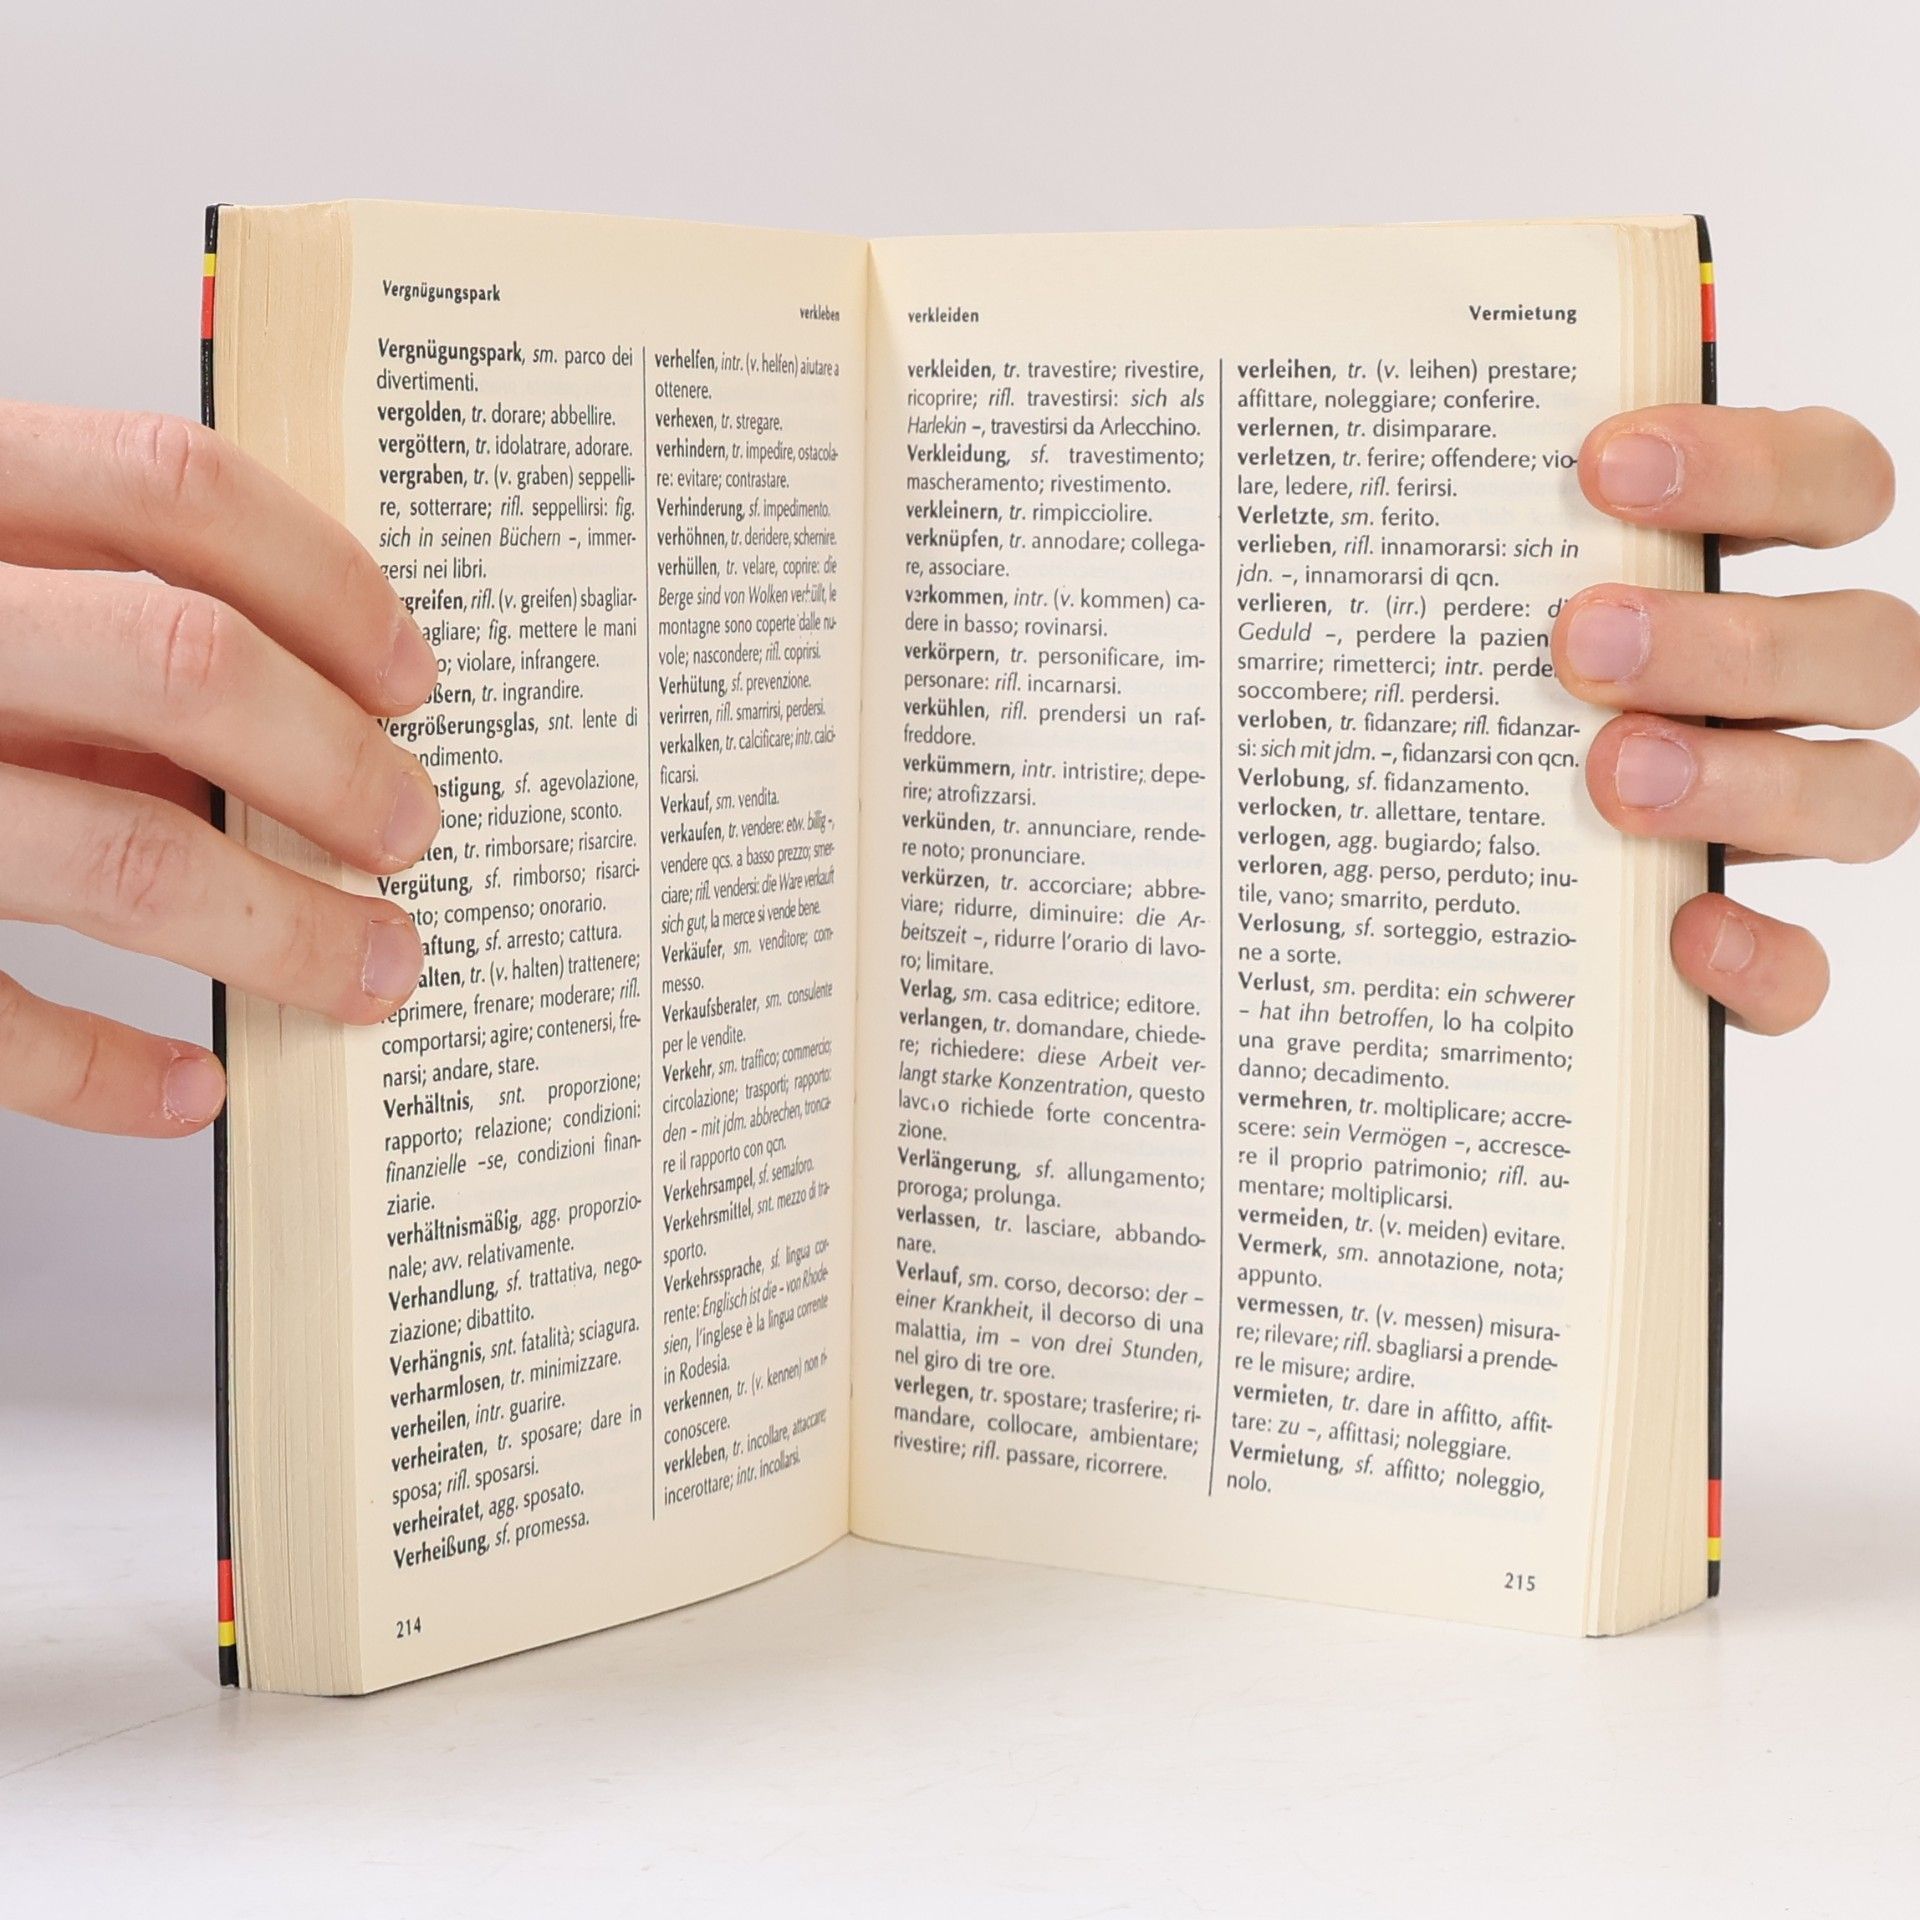 Vergnügungspark
verkleben
Vergnügungspark, sm. parco dei
divertimenti.
vergolden, tr. dorare; abbellire.
vergöttern, tr. idolatrare, adorare.
vergraben, tr. (v. graben) seppelli-
re, sotterrare; rifl. seppellirsi: fig.
sich in seinen Büchern –, immer-
gersi nei libri.
rifl. (v. greifen) sbagliar-
fig. mettere le mani
violare, infrangere.
tr. ingrandire.
Vergrößerungsglas, snt. lente di
sf. agevolazione,
riduzione, sconto.
tr. rimborsare; risarcire.
Vergütung, sf. rimborso; risarci-
compenso; onorario.
sf. arresto; cattura.
tr. (v. halten) trattenere;
frenare; moderare; rifl.
comportarsi; agire; contenersi, fre-
narsi; andare, stare.
Verhältnis, snt. proporzione;
rapporto; relazione; condizioni:
finanzielle –se, condizioni finan-
ziarie.
verhältnismäßig, agg. proporzio-
nale; avv. relativamente.
Verhandlung, sf. trattativa, nego-
ziazione; dibattito.
Verhängnis, snt. fatalità; sciagura.
verharmlosen, tr. minimizzare.
verheilen, intr. guarire.
verheiraten, tr. sposare; dare in
sposa; rifl. sposarsi.
verheiratet, agg. sposato.
Verheißung, sf. promessa.
verhelfen, intr. (v. helfen) aiutare a
ottenere.
verhexen, tr. stregare.
verhindern, tr. impedire, ostacola-
re: evitare; contrastare.
Verhinderung, sf. impedimento.
verhöhnen, tr. deridere, schernire.
verhüllen, tr. velare, coprire: die
Berge sind von Wolken verhüllt, le
montagne sono coperte dalle nu-
vole; nascondere; rifl. coprirsi.
Verhütung, sf. prevenzione.
verirren, rifl. smarrirsi, perdersi.
verkalken, tr. calcificare; intr. calci-
ficarsi.
Verkauf, sm. vendita.
verkaufen, tr. vendere: etw. billig –,
vendere qcs. a basso prezzo; smer-
ciare; rifl. vendersi: die Ware verkauft
sich gut, la merce si vende bene.
Verkäufer, sm. venditore; com-
messo.
Verkaufsberater, sm. consulente
per le vendite.
Verkehr, sm. traffico; commercio;
circolazione; trasporti; rapporto:
den – mit jdm. abbrechen, tronca-
re il rapporto con qcn.
Verkehrsampel, sf. semaforo.
Verkehrsmittel, snt. mezzo di tra-
sporto.
Verkehrssprache, sf. lingua cor-
rente: Englisch ist die – von Rhode-
sien, l'inglese è la lingua corrente
in Rodesia.
verkennen, tr. (v. kennen) non ri-
conoscere.
verkleben, tr. incollare, attaccare;
incerottare; intr. incollarsi.
214
verkleiden
Vermietung
verkleiden, tr. travestire; rivestire,
ricoprire; rifl. travestirsi: sich als
Harlekin –, travestirsi da Arlecchino.
Verkleidung, sf. travestimento;
mascheramento; rivestimento.
verkleinern, tr. rimpicciolire.
verknüpfen, tr. annodare; collega-
re, associare.
verkommen, intr. (v. kommen) ca-
dere in basso; rovinarsi.
verkörpern, tr. personificare, im-
personare: rifl. incarnarsi.
verkühlen, rifl. prendersi un raf-
freddore.
verkümmern, intr. intristire; depe-
rire; atrofizzarsi.
verkünden, tr. annunciare, rende-
re noto; pronunciare.
verkürzen, tr. accorciare; abbre-
viare; ridurre, diminuire: die Ar-
beitszeit –, ridurre l'orario di lavo-
ro; limitare.
Verlag, sm. casa editrice; editore.
verlangen, tr. domandare, chiede-
re; richiedere: diese Arbeit ver-
langt starke Konzentration, questo
lavoro richiede forte concentra-
zione.
Verlängerung, sf. allungamento;
proroga; prolunga.
verlassen, tr. lasciare, abbando-
nare.
Verlauf, sm. corso, decorso: der –
einer Krankheit, il decorso di una
malattia, im – von drei Stunden,
nel giro di tre ore.
verlegen, tr. spostare; trasferire; ri-
mandare, collocare, ambientare;
rivestire; rifl. passare, ricorrere.
verleihen, tr. (v. leihen) prestare;
affittare, noleggiare; conferire.
verlernen, tr. disimparare.
verletzen, tr. ferire; offendere; vio-
lare, ledere, rifl. ferirsi.
Verletzte, sm. ferito.
verlieben, rifl. innamorarsi: sich in
jdn. –, innamorarsi di qcn.
verlieren, tr. (irr.) perdere:
Geduld –, perdere la
smarrire; rimetterci; intr.
soccombere; rifl. perdersi.
verloben, tr. fidanzare; rifl. fidanzar-
si: sich mit jdm. –, fidanzarsi con qcn.
Verlobung, sf. fidanzamento.
verlocken, tr. allettare, tentare.
verlogen, agg. bugiardo; falso.
verloren, agg. perso, perduto; inu-
tile, vano; smarrito, perduto.
Verlosung, sf. sorteggio, estrazio-
ne a sorte.
Verlust, sm. perdita: ein schwerer
– hat ihn betroffen, lo ha colpito
una grave perdita; smarrimento;
danno; decadimento.
vermehren, tr. moltiplicare; accre-
scere: sein Vermögen –, accresce-
re il proprio patrimonio; rifl. au-
mentare; moltiplicarsi.
vermeiden, tr. (v. meiden) evitare.
Vermerk, sm. annotazione, nota;
appunto.
vermessen, tr. (v. messen) misura-
re; rilevare; rifl. sbagliarsi a prende-
re le misure; ardire.
vermieten, tr. dare in affitto, affit-
tare: zu –, affittasi; noleggiare.
Vermietung, sf. affitto; noleggio,
nolo.
215